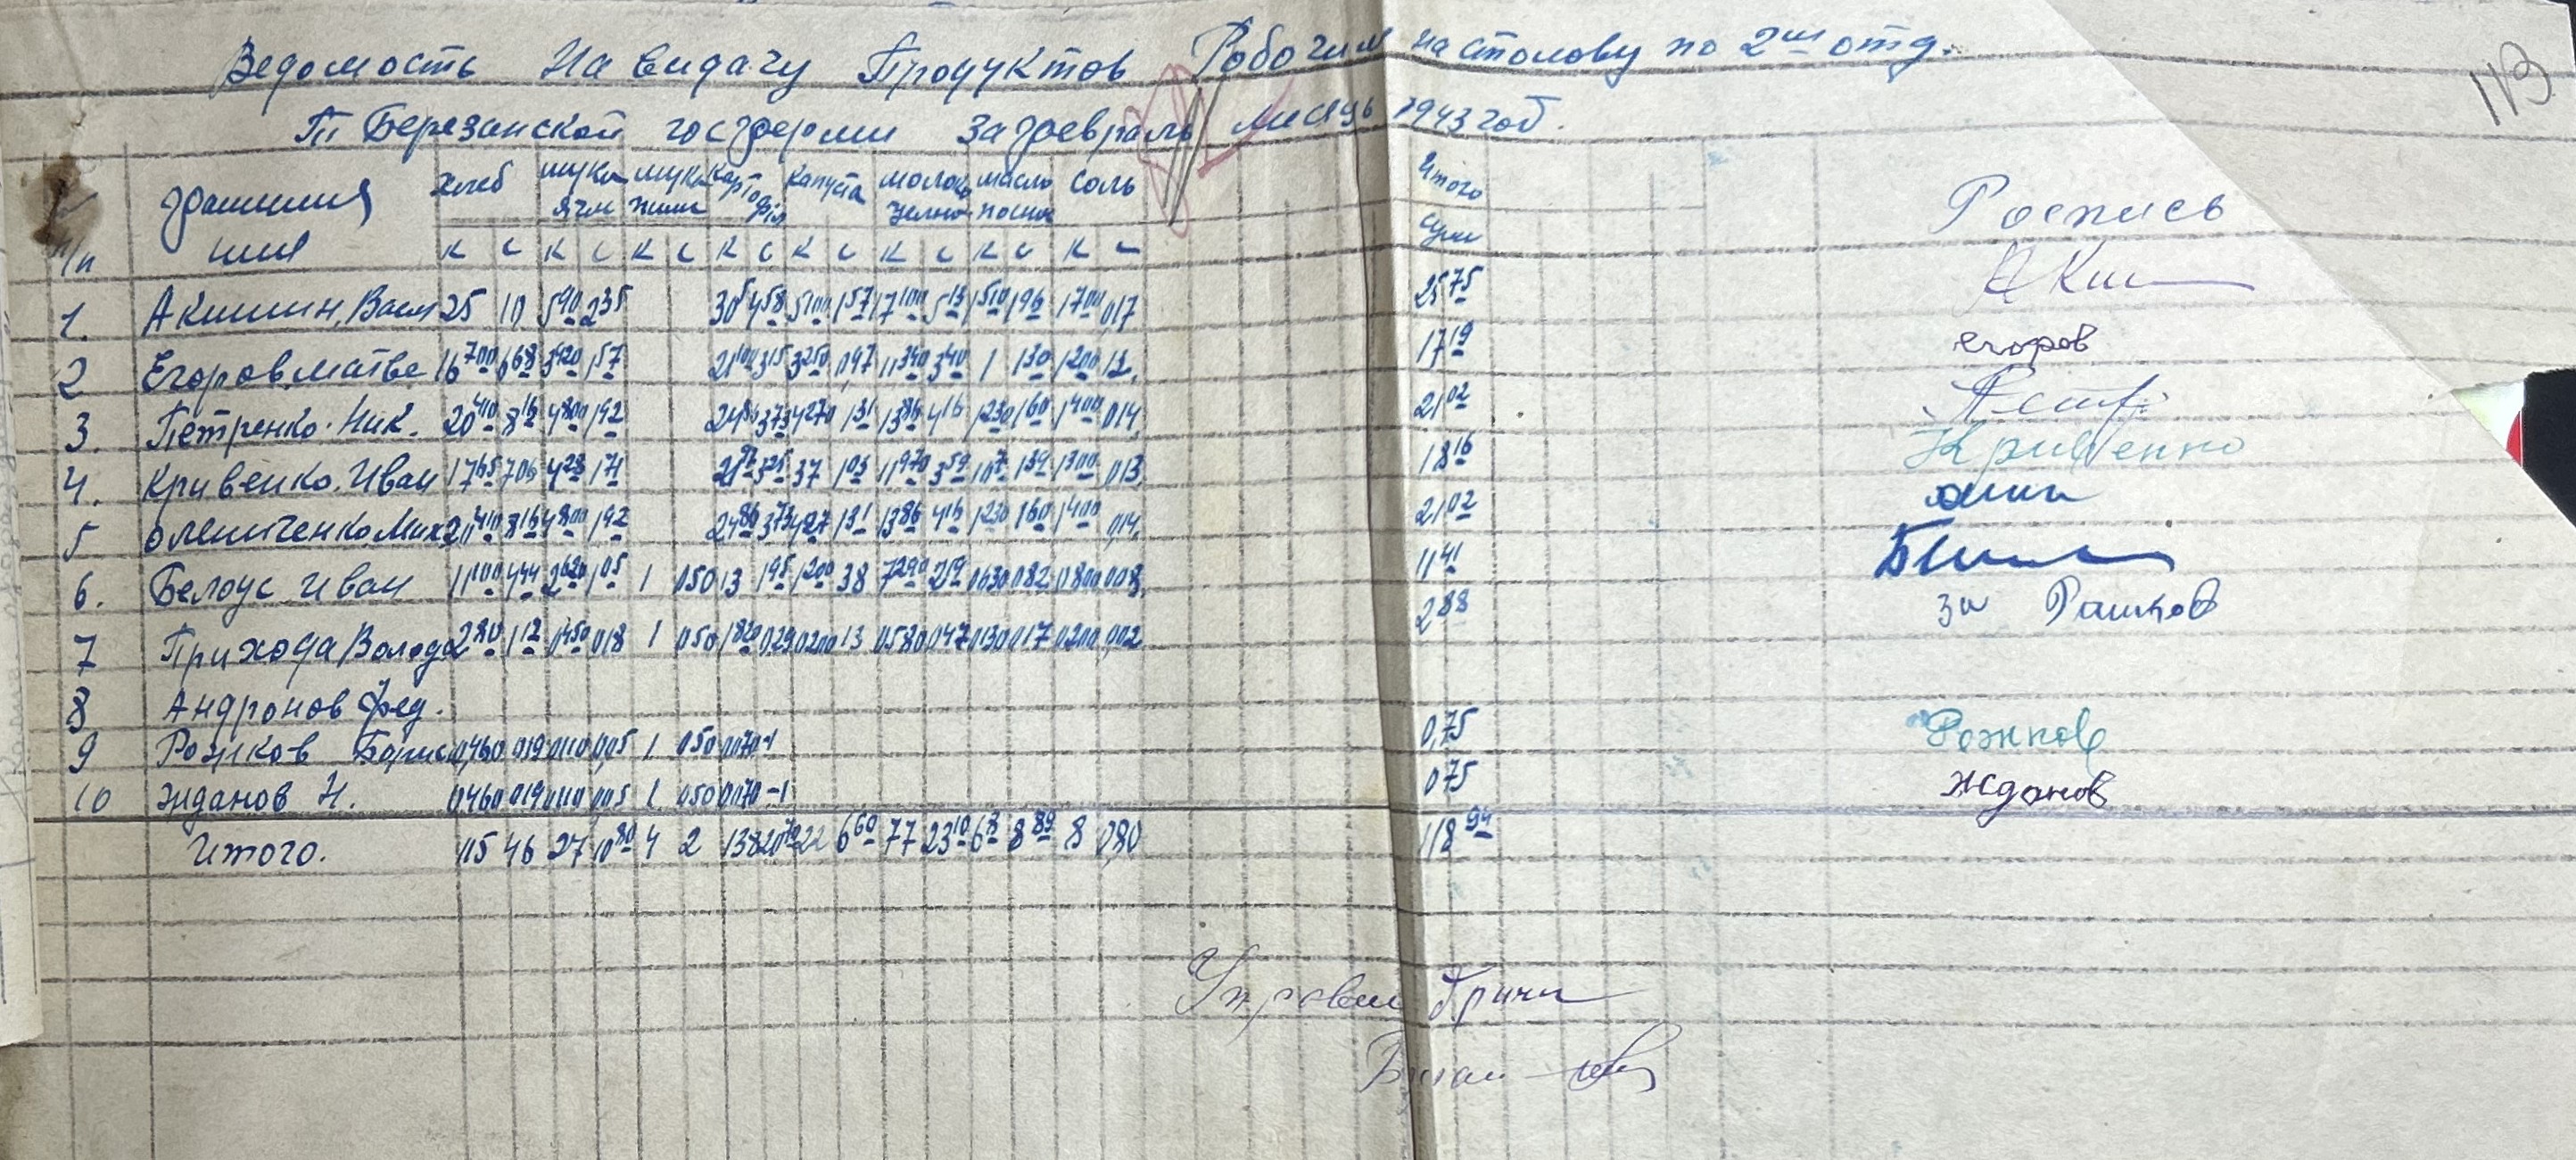 113
Ведомость На видачу Продуктов Робочим на столову по 2ш отд.
Тп Березанской госферми за февраль месяць 1943 год.
п/п фамилия имя хлеб мука ячм мука пшен картофіл капуста молоко цельно масло постно соль Итого сум Роспись
к с к с к с к с к с к с к с к с
1. Акимин, Васи 25 10 5 90 2 35 30 5 4 58 5 100 1 57 17 100 5 13 1 510 1 96 1 700 0,17 25 75
2 Егоров матве 16 700 6 68 3 920 1 57 21 100 3 15 3 250 0,97 11 340 3 40 1 1 30 1 200 12, 17 19 егоров
3. Петренко. Ник. 20 410 8 16 4 800 1 92 24 86 3 73 4 270 1 31 13 86 4 16 1 230 1 60 1 400 014, 21 02
4. Кривенко. Иван 17 65 7 06 4 28 1 71 3 25 37 1 03 11 970 3 59 1 07 1 39 1 300 013 18 16 Кривенко
5 Олейниченко Миха 20 410 8 16 4 800 1 92 24 86 3 73 4 27 1 31 13 86 4 16 1 230 1 60 1 400 ,014, 21 02
6. Белоус Иван 11 100 4 44 2 620 1 05 1 050 13 1 95 1 200 38 7 290 2 19 0630 082 0800 008, 11 41
7 Прихода Володя 2 80 1 12 0450 018 1 050 1 820 029 0200 13 0580 047 0130 017 0200 ,002 2 88 за Рашков
8 Андронов Фед.
9 Рожков Борис 0,460 019 0110 0,05 1 050 0070 -1 0,75 Рожков
10 Жданов Н. 0460 019 0110 005 1 050 0070 -1 0 75 Жданов
Итого. 115 46 27 10 80 4 2 138 20 70 22 6 60 77 23 10 6 8 8 89 8 0,80 118 94